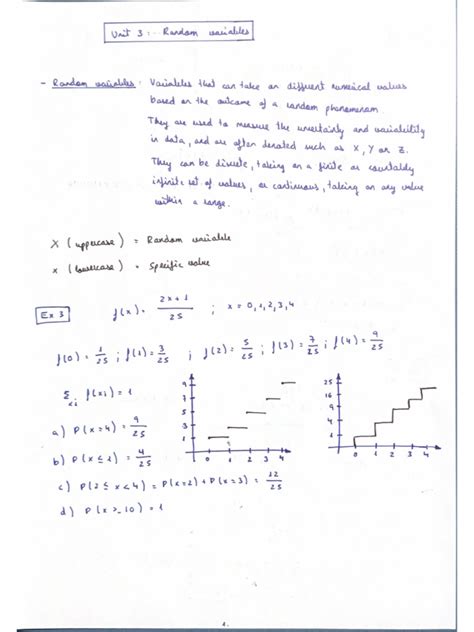 Unit 3: Random variables
- Random variables: Variables that can take on different numerical values
based on the outcome of a random phenomenon.
They are used to measure the uncertainty and variability
in data, and are often denoted such as X, Y or Z.
They can be discrete, taking on a finite or countably
infinite set of values, or continuous, taking on any value
within a range.
X (uppercase) = Random variable
x (lowercase) = Specific value
Ex 3 f(x) = (2x+1)/25 ; x = 0,1,2,3,4
f(0) = 1/25 ; f(1) = 3/25 ; f(2) = 5/25 ; f(3) = 7/25 ; f(4) = 9/25
f(xi) = 1
a) P(x=4) = 9/25
b) P(x ≤ 1) = 4/25
c) P(2 ≤ x < 4) = P(x=2) + P(x=3) = 12/25
d) P(x > -10) = 1
9
7
5
3
1
0 1 2 3 4
25
16
9
4
1
0 1 2 3 4